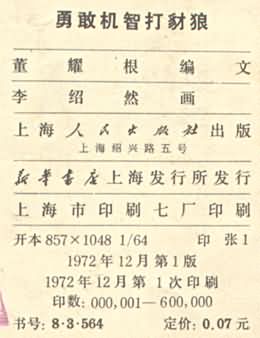 勇敢机智打豺狼
董耀根编文
李绍然画
上海人民出版社出版
上海绍兴路五号
新华书店上海发行所发行
上海市印刷七厂印刷
开本 857×1048 1/64 印张 1
1972年12月第1版
1972年12月第1次印刷
印数: 000,001—600,000
书号: 8·3·564 定价: 0.07元